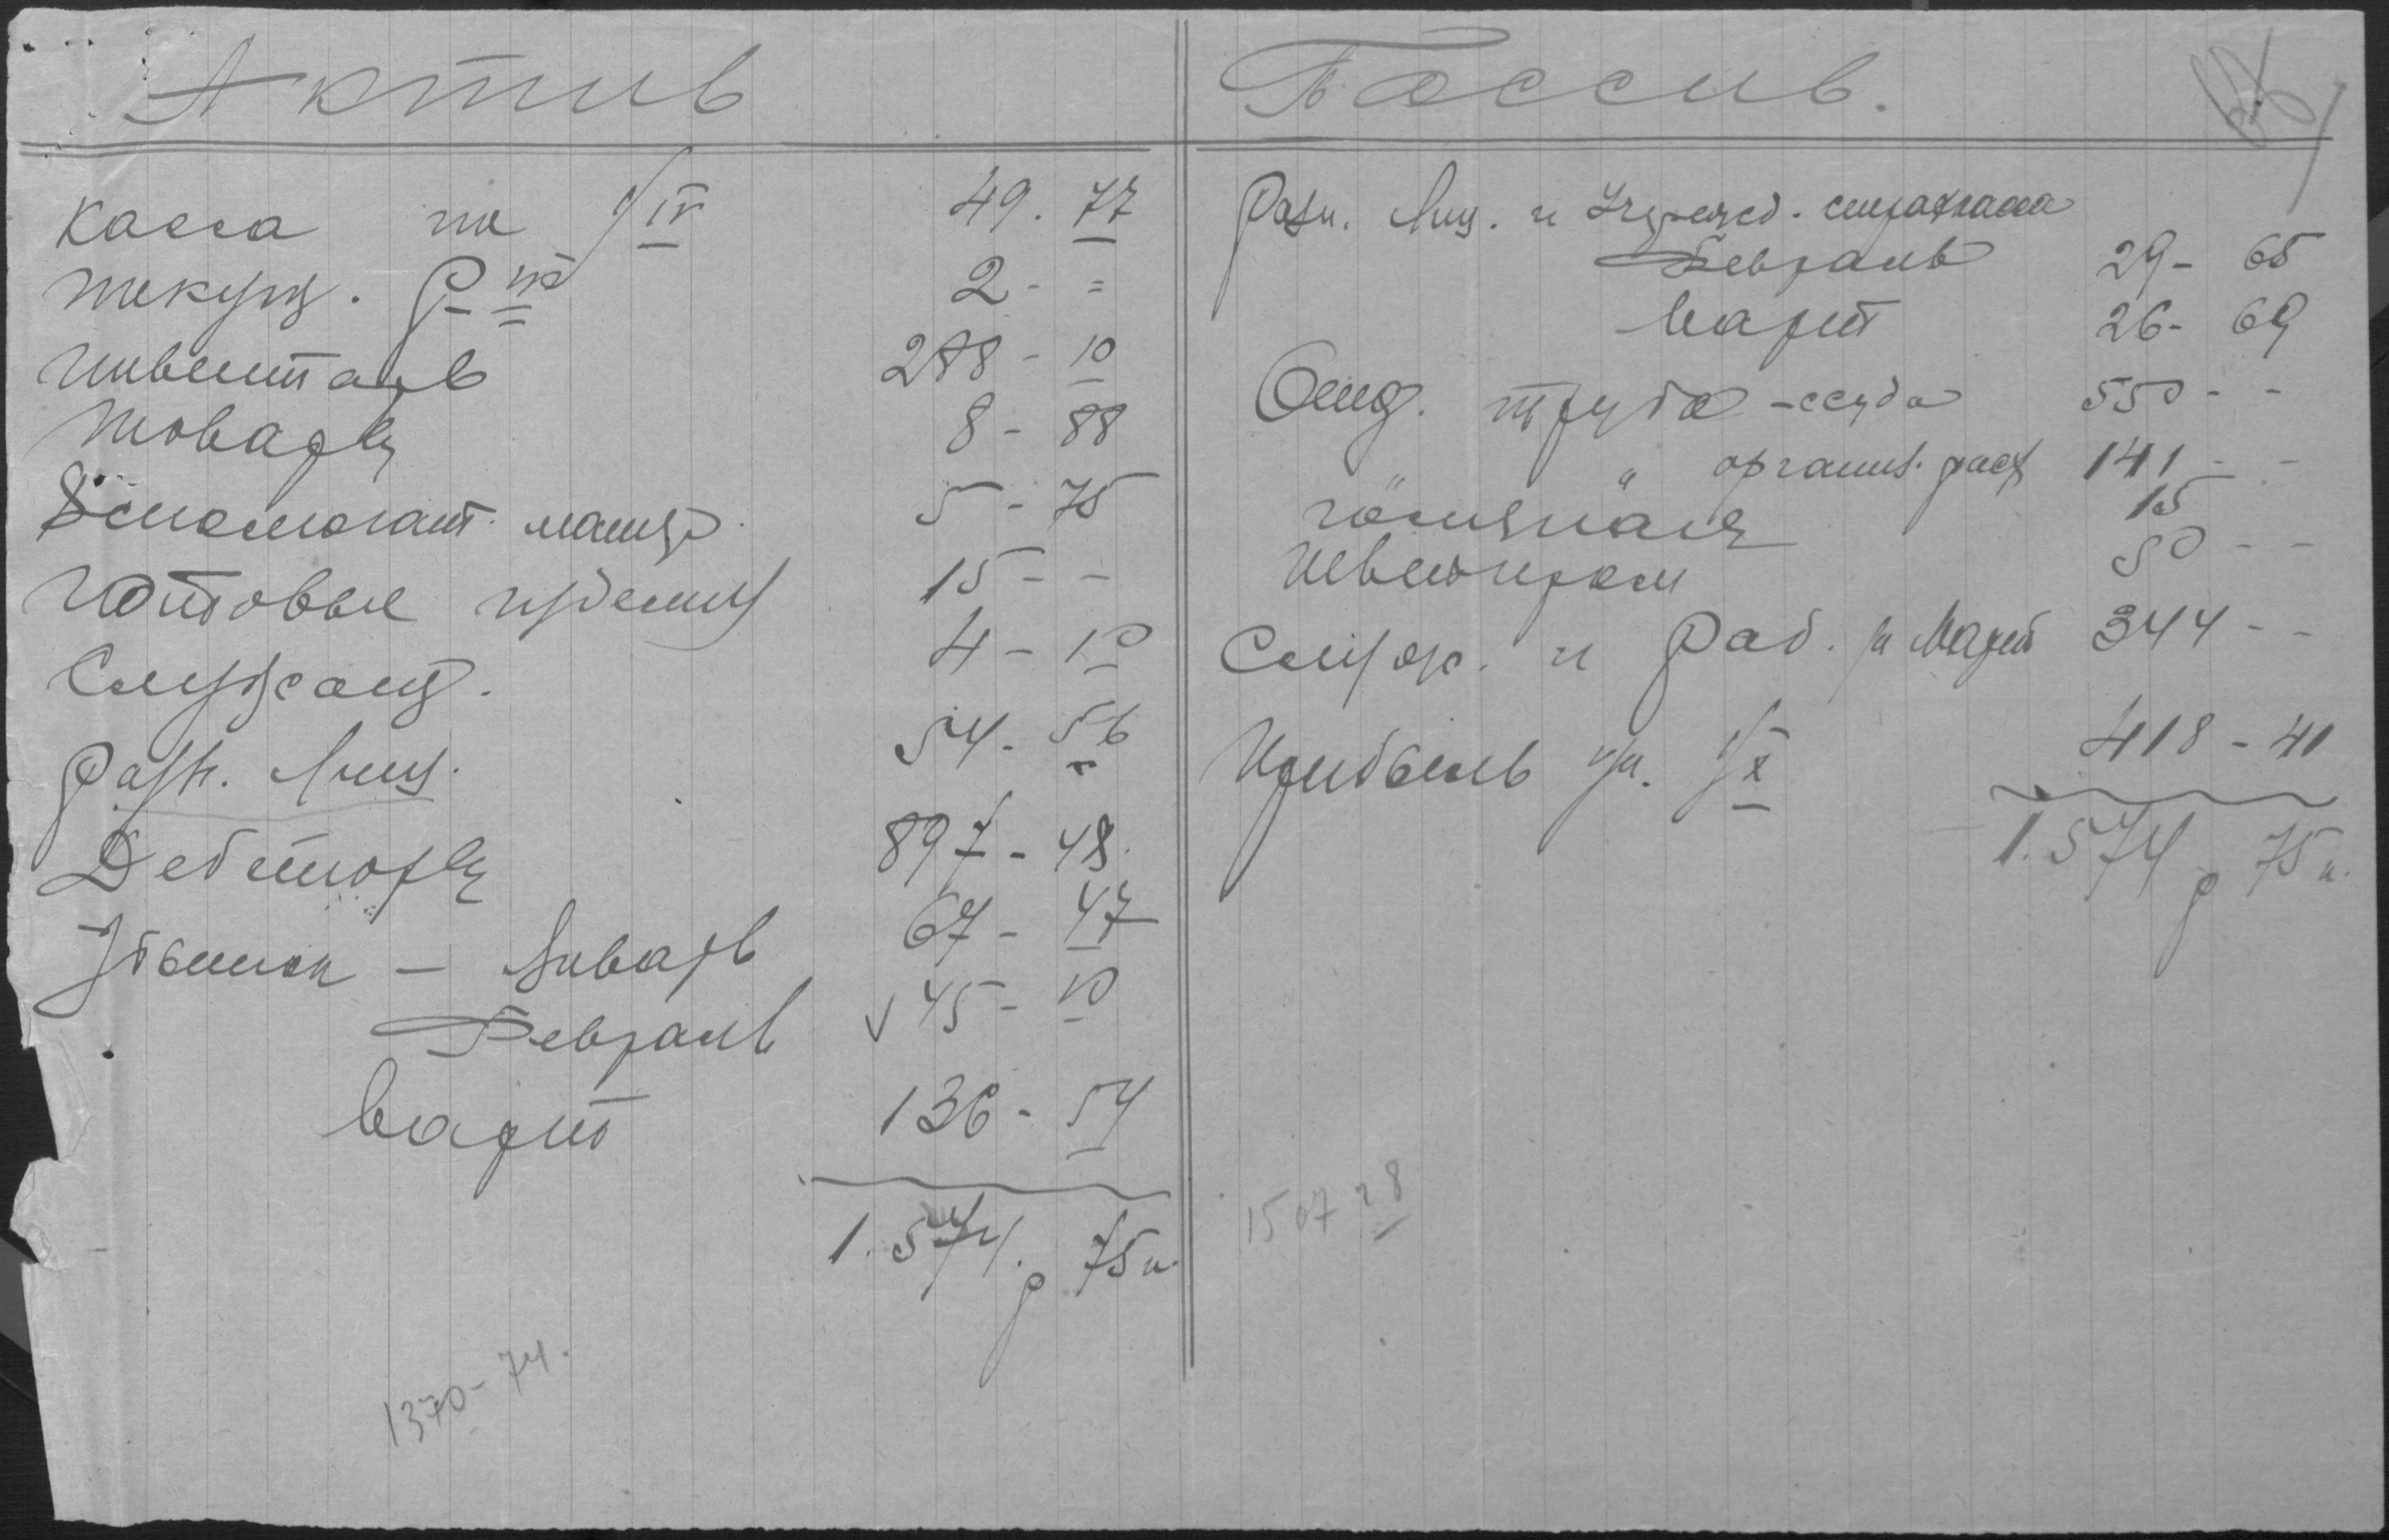 Актив
Касса на 1/IV 49. 77
Текущ. 2 - =
Инвентарь 288 - 10
Товары 8 - 88
Вспомогат. матер. 5 - 75
Готовые изделия 15 - -
Служащ. 4 - 10
Разн. Лиц. 54 - 56
Дебиторы 897 - 48
Убытки - Январь 67 - 47
Февраль √ 45 - 10
Март 136 - 54
1.574 р 75 к.
1370 - 74.
Пассив.
Разн. Лиц. и Учрежд. страхкасса
Февраль 29 - 65
Март 26 - 69
Отд. труда - ссуда 550 - -
" " организ. расх 141 - -
15
50 - -
Служ. и Раб. за Март 344 - -
Прибыль на 1/X 418 - 41
1.574 р 75 к.
1507 28